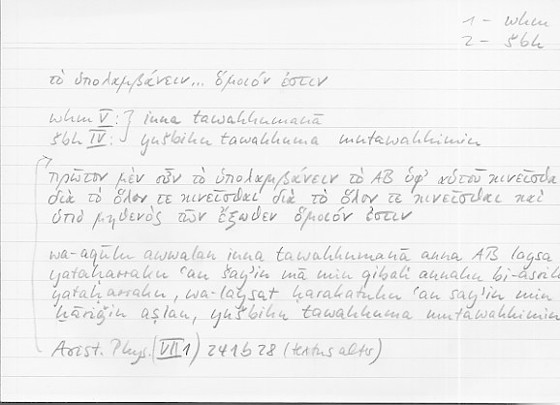 1 – whm
2 – šbh
τὸ ὑπολαμβάνειν... ὅμοιόν ἐστιν
whm V: } inna tawahhumanā
šbh IV: } yušbihu tawahhuma mutawahhimin
πρῶτον μὲν οὖν τὸ ὑπολαμβάνειν τὸ ΑΒ ὑφ' αὑτοῦ κινεῖσθαι
διὰ τὸ ὅλον τε κινεῖσθαι διὰ τὸ ὅλον τε κινεῖσθαι καὶ
ὑπὸ μηθενὸς τῶν ἔξωθεν ὅμοιόν ἐστιν
wa-aqūlu awwalan inna tawahhumanā anna AB laysa
yataḥarraku ʿan šayʾin mā min qibali annahu bi-asrihi
yataḥarraku, wa-laysat ḥarakatuhu ʿan šayʾin min
ḫāriǧin aṣlan, yušbihu tawahhuma mutawahhimin
Arist. Phys. (VII 1) 241b28 (textus alter)